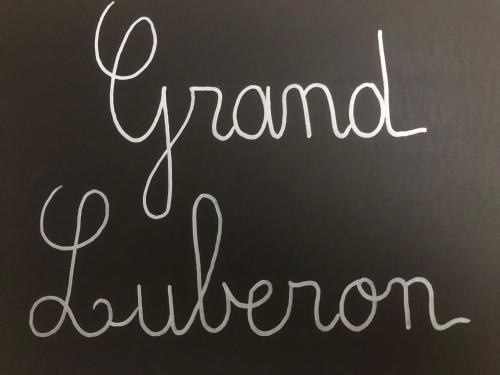 Grand
Luberon